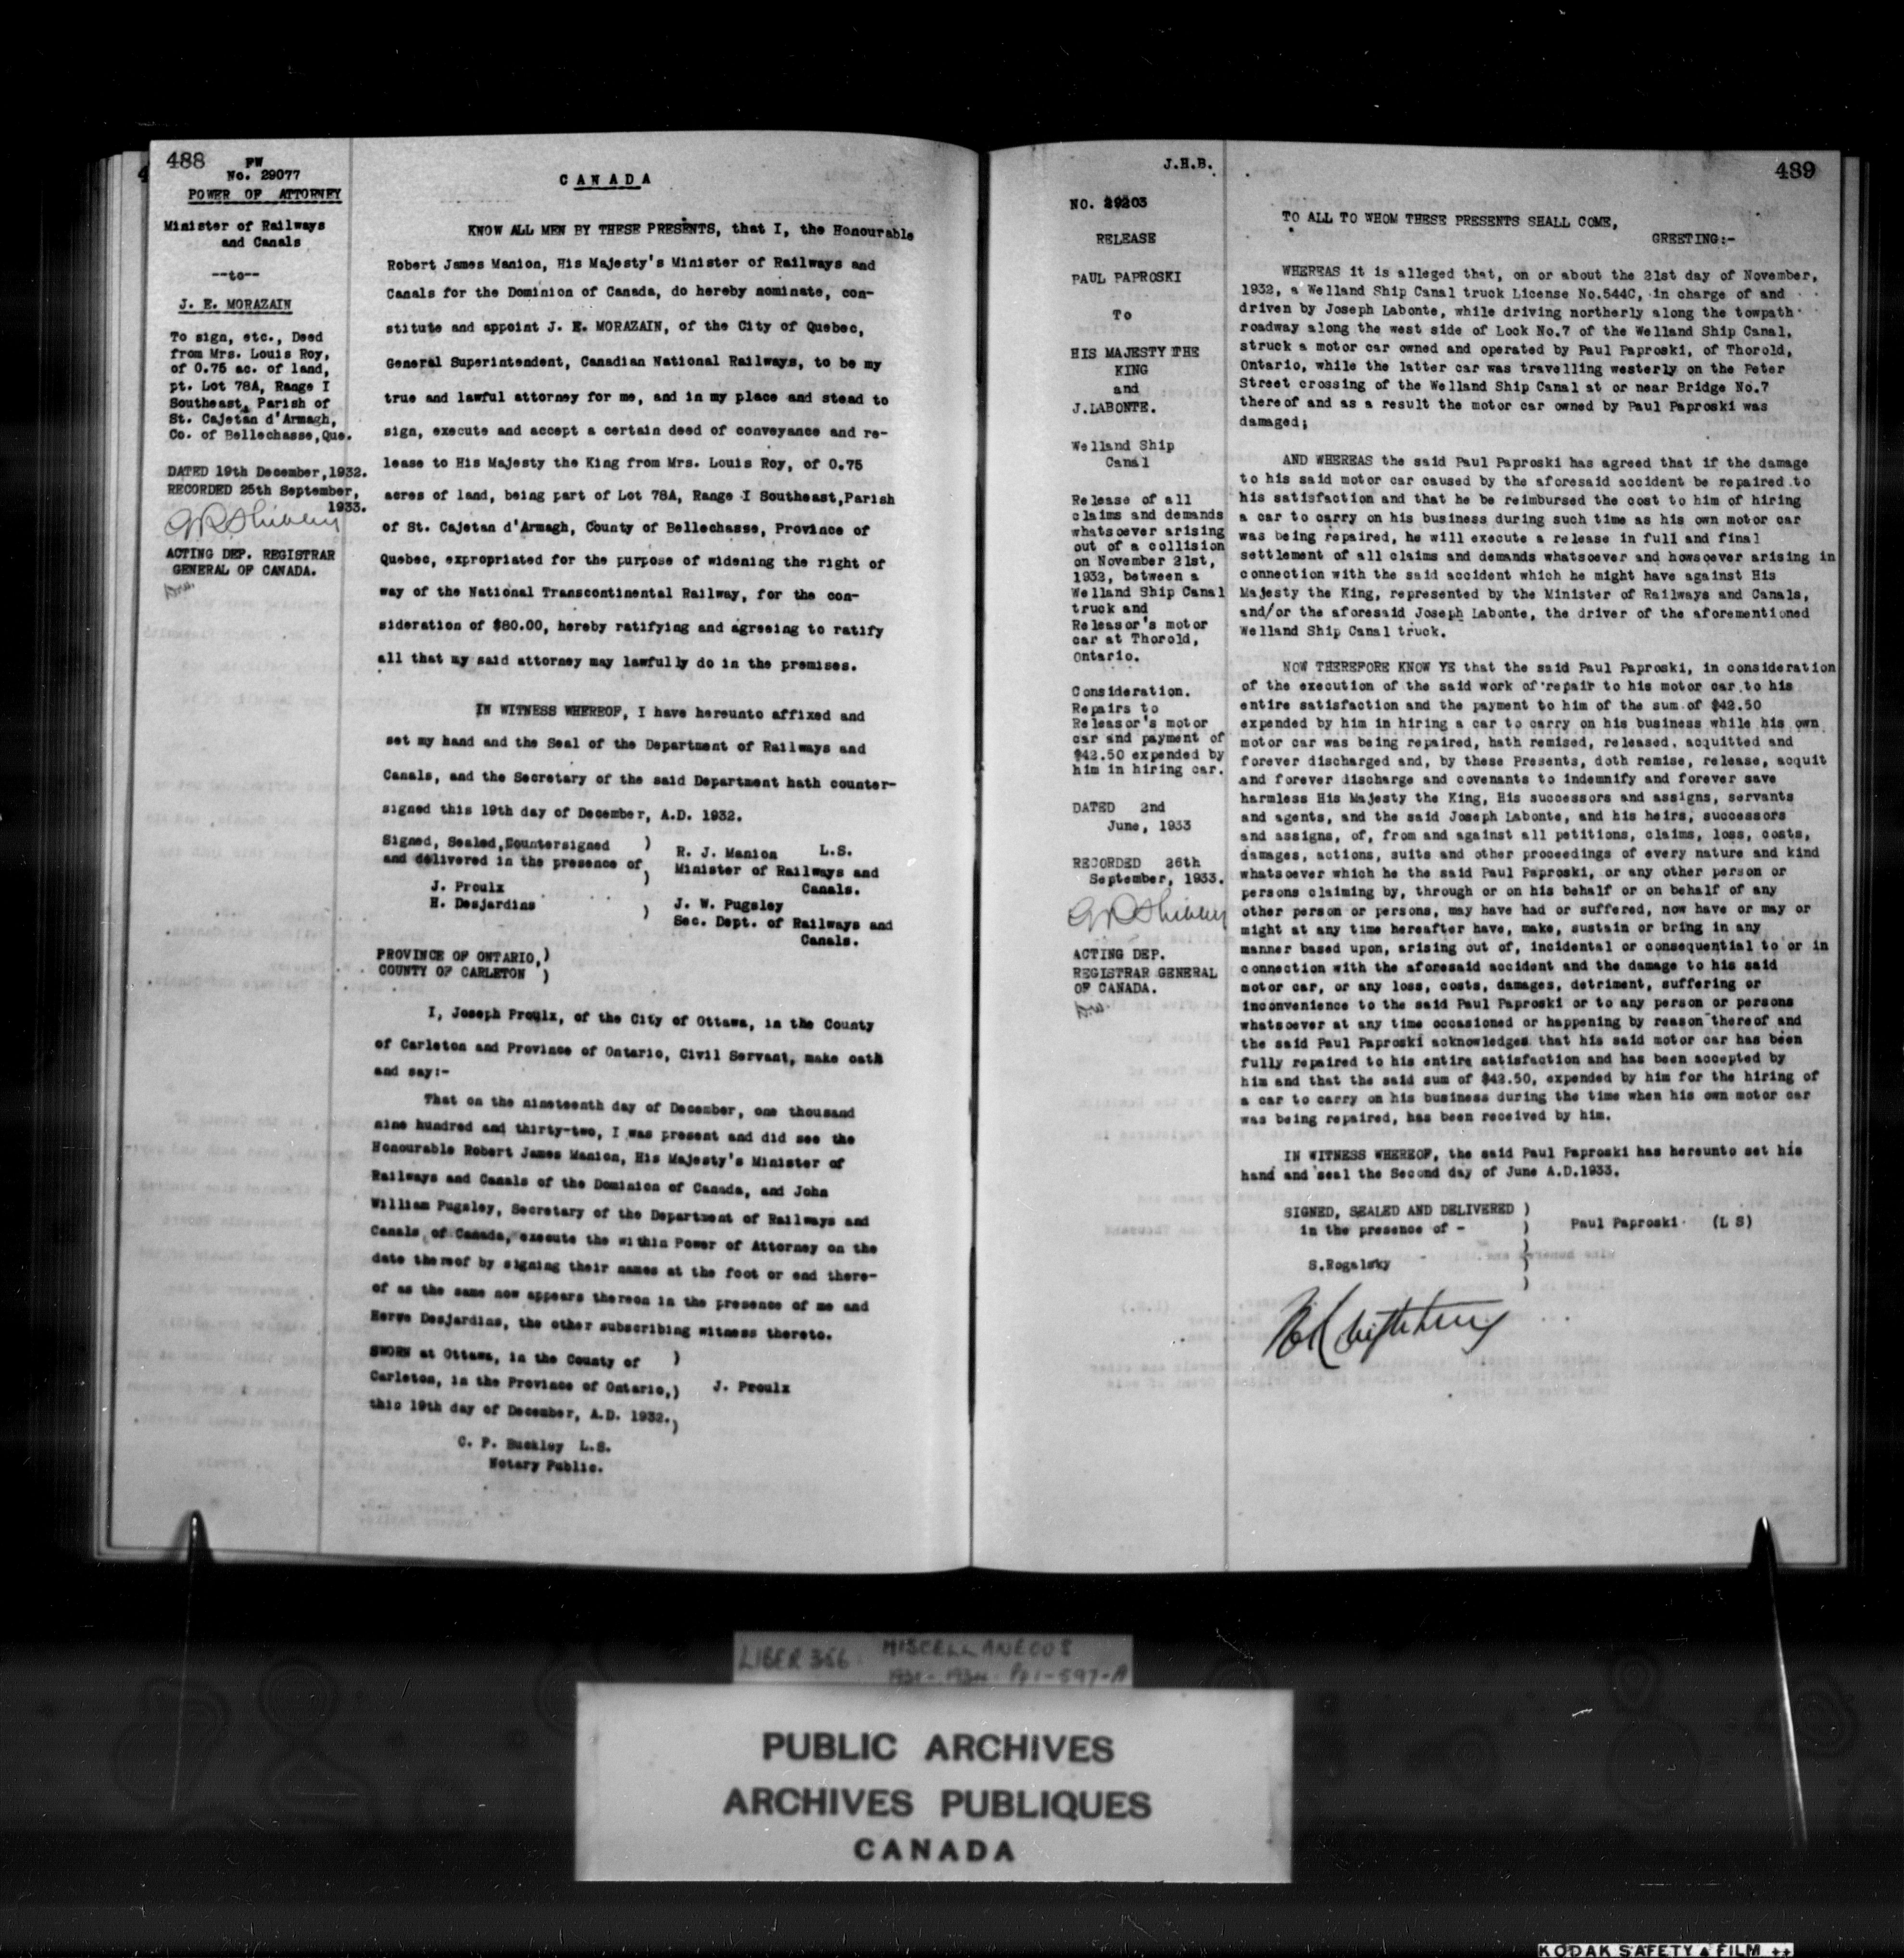 488
PW
No. 29077
POWER OF ATTORNEY
Minister of Railways
and Canals
--to--
J. E. MORAZAIN
To sign, etc., Deed
from Mrs. Louis Roy,
of 0.75 ac. of land,
pt. Lot 78A, Range I
Southeast, Parish of
St. Cajetan d'Armagh,
Co. of Bellechasse,Que.
DATED 19th December,1932.
RECORDED 25th September,
1933.
ACTING DEP. REGISTRAR
GENERAL OF CANADA.
CANADA
KNOW ALL MEN BY THESE PRESENTS, that I, the Honourable
Robert James Manion, His Majesty's Minister of Railways and
Canals for the Dominion of Canada, do hereby nominate, con-
stitute and appoint J. E. MORAZAIN, of the City of Quebec,
General Superintendent, Canadian National Railways, to be my
true and lawful attorney for me, and in my place and stead to
sign, execute and accept a certain deed of conveyance and re-
lease to His Majesty the King from Mrs. Louis Roy, of 0.75
acres of land, being part of Lot 78A, Range I Southeast,Parish
of St. Cajetan d'Armagh, County of Bellechasse, Province of
Quebec, expropriated for the purpose of widening the right of
way of the National Transcontinental Railway, for the con-
sideration of $80.00, hereby ratifying and agreeing to ratify
all that my said attorney may lawfully do in the premises.
IN WITNESS WHEREOF, I have hereunto affixed and
set my hand and the Seal of the Department of Railways and
Canals, and the Secretary of the said Department hath counter-
signed this 19th day of December, A.D. 1932.
Signed, Sealed,Countersigned )
and delivered in the presence of )
J. Proulx
H. Desjardins )
R. J. Manion L.S.
Minister of Railways and
Canals.
J. W. Pugsley
Sec. Dept. of Railways and
Canals.
PROVINCE OF ONTARIO,)
COUNTY OF CARLETON )
I, Joseph Proulx, of the City of Ottawa, in the County
of Carleton and Province of Ontario, Civil Servant, make oath
and say:-
That on the nineteenth day of December, one thousand
nine hundred and thirty-two, I was present and did see the
Honourable Robert James Manion, His Majesty's Minister of
Railways and Canals of the Dominion of Canada, and John
William Pugsley, Secretary of the Department of Railways and
Canals of Canada, execute the within Power of Attorney on the
date thereof by signing their names at the foot or end there-
of as the same now appears thereon in the presence of me and
Herve Desjardins, the other subscribing witness thereto.
SWORN at Ottawa, in the County of )
Carleton, in the Province of Ontario,) J. Proulx
this 19th day of December, A.D. 1932.)
C. P. Buckley L.S.
Notary Public.
J.H.B.
489
NO. 29203
RELEASE
PAUL PAPROSKI
To
HIS MAJESTY THE
KING
and
J.LABONTE.
Welland Ship
Canal
Release of all
claims and demands
whatsoever arising
out of a collision
on November 21st,
1932, between a
Welland Ship Canal
truck and
Releasor's motor
car at Thorold,
Ontario.
Consideration.
Repairs to
Releasor's motor
car and payment of
$42.50 expended by
him in hiring car.
DATED 2nd
June, 1933
RECORDED 26th
September, 1933.
ACTING DEP.
REGISTRAR GENERAL
OF CANADA.
TO ALL TO WHOM THESE PRESENTS SHALL COME,
GREETING:-
WHEREAS it is alleged that, on or about the 21st day of November,
1932, a Welland Ship Canal truck License No.544C, in charge of and
driven by Joseph Labonte, while driving northerly along the towpath
roadway along the west side of Lock No.7 of the Welland Ship Canal,
struck a motor car owned and operated by Paul Paproski, of Thorold,
Ontario, while the latter car was travelling westerly on the Peter
Street crossing of the Welland Ship Canal at or near Bridge No.7
thereof and as a result the motor car owned by Paul Paproski was
damaged;
AND WHEREAS the said Paul Paproski has agreed that if the damage
to his said motor car caused by the aforesaid accident be repaired to
his satisfaction and that he be reimbursed the cost to him of hiring
a car to carry on his business during such time as his own motor car
was being repaired, he will execute a release in full and final
settlement of all claims and demands whatsoever and howsoever arising in
connection with the said accident which he might have against His
Majesty the King, represented by the Minister of Railways and Canals,
and/or the aforesaid Joseph Labonte, the driver of the aforementioned
Welland Ship Canal truck.
NOW THEREFORE KNOW YE that the said Paul Paproski, in consideration
of the execution of the said work of repair to his motor car to his
entire satisfaction and the payment to him of the sum of $42.50
expended by him in hiring a car to carry on his business while his own
motor car was being repaired, hath remised, released, acquitted and
forever discharged and, by these Presents, doth remise, release, acquit
and forever discharge and covenants to indemnify and forever save
harmless His Majesty the King, His successors and assigns, servants
and agents, and the said Joseph Labonte, and his heirs, successors
and assigns, of, from and against all petitions, claims, loss, costs,
damages, actions, suits and other proceedings of every nature and kind
whatsoever which he the said Paul Paproski, or any other person or
persons claiming by, through or on his behalf or on behalf of any
other person or persons, may have had or suffered, now have or may or
might at any time hereafter have, make, sustain or bring in any
manner based upon, arising out of, incidental or consequential to or in
connection with the aforesaid accident and the damage to his said
motor car, or any loss, costs, damages, detriment, suffering or
inconvenience to the said Paul Paproski or to any person or persons
whatsoever at any time occasioned or happening by reason thereof and
the said Paul Paproski acknowledges that his said motor car has been
fully repaired to his entire satisfaction and has been accepted by
him and that the said sum of $42.50, expended by him for the hiring of
a car to carry on his business during the time when his own motor car
was being repaired, has been received by him.
IN WITNESS WHEREOF, the said Paul Paproski has hereunto set his
hand and seal the Second day of June A.D.1933.
SIGNED, SEALED AND DELIVERED )
in the presence of - ) Paul Paproski (L S)
)
S.Rogalsky )
)
LIBER 366 MISCELLANEOUS
PUBLIC ARCHIVES
ARCHIVES PUBLIQUES
CANADA
KODAK SAFETY FILM